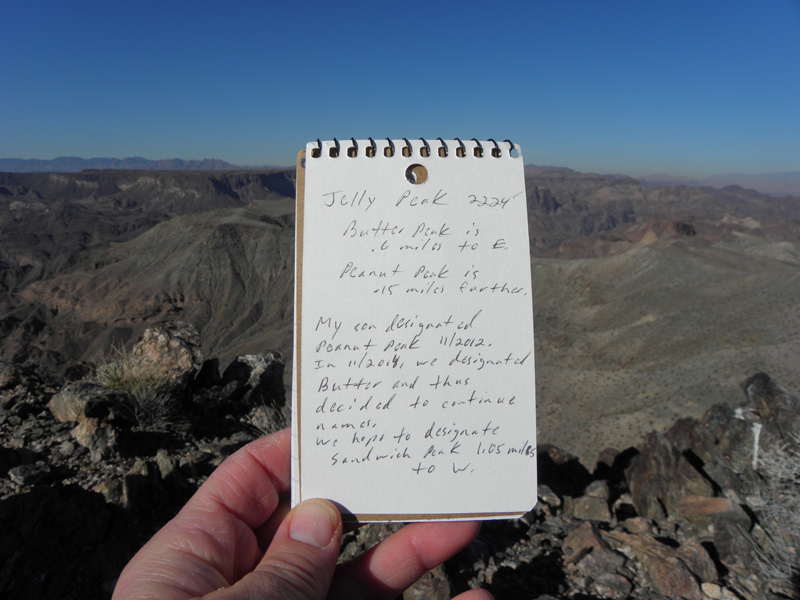 Jelly Peak 2224'
Butter Peak is
.6 miles to E.
Peanut Peak is
.15 miles further.
My son designated
Peanut Peak 11/2012.
In 11/2014, we designated
Butter and thus
decided to continue
names.
We hope to designate
Sandwich Peak 1.05 miles
to W.